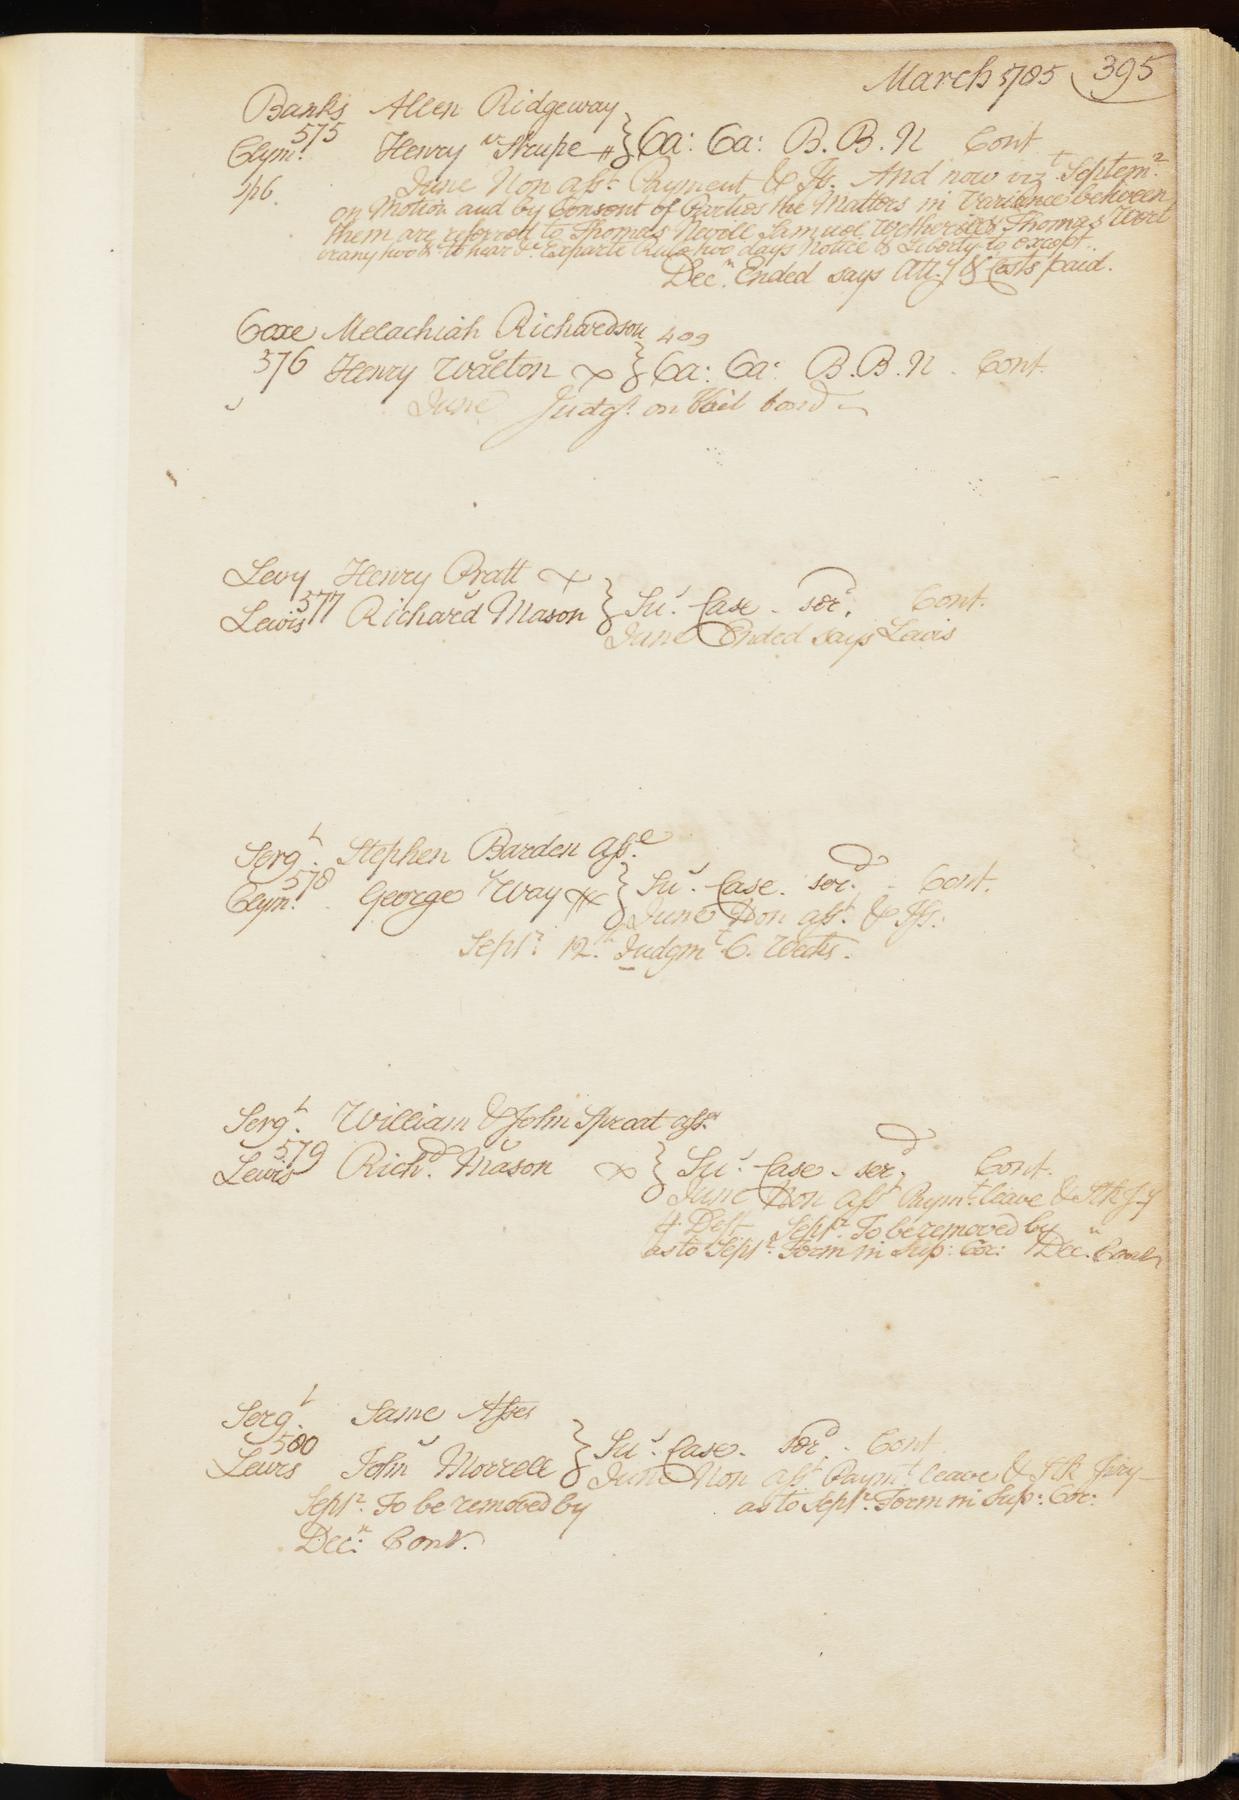 March 1785 395
Banks Allen Ridgeway
575
Clymr. Henry v Strupe } Ca: Ca: B. B. N Cont
June Non asst. Payment & Is. And now vizt. Septemr.
on Motion and by Consent of Parties the Matters in Variance between
them are referred to Thomas Nevill Samuel Wetherill & Thomas
or any two &c to hear &c Exparte Rule two days Notice & Liberty to except.
Decr. Ended says Atty & Costs paid.
Coxe Melachiah Richardson 409
576 Henry Walton } Ca: Ca: B. B. N. Cont.
June Judgt. on Bail bond
Levy Henry Pratt
577
Lewis Richard Mason } Su. Case - serd. Cont.
June Ended says Lewis
Sergt. Stephen Barden asse.
578
Clym. George Way } Su. Case. serd. - Cont.
June Non asst. & Iss:
Septr. 12th. Judgmt. C. Wects.
Sergt. William & John Sproat asse.
579
Lewis Richd. Mason } Su. Case - serd. Cont.
June Non asst Paymt. leave &
4 Deft Septr. To be removed by
as to Septr. Term in Sup: Cor: Decr.
Sergt. Same Asses
580
Lewis John Morrell } Su. Case - serd. - Cont
June Non asst. Paymt. leave & Jury
Septr. To be removed by as to Septr. Term in Sup: Cor:
Decr. Cont.